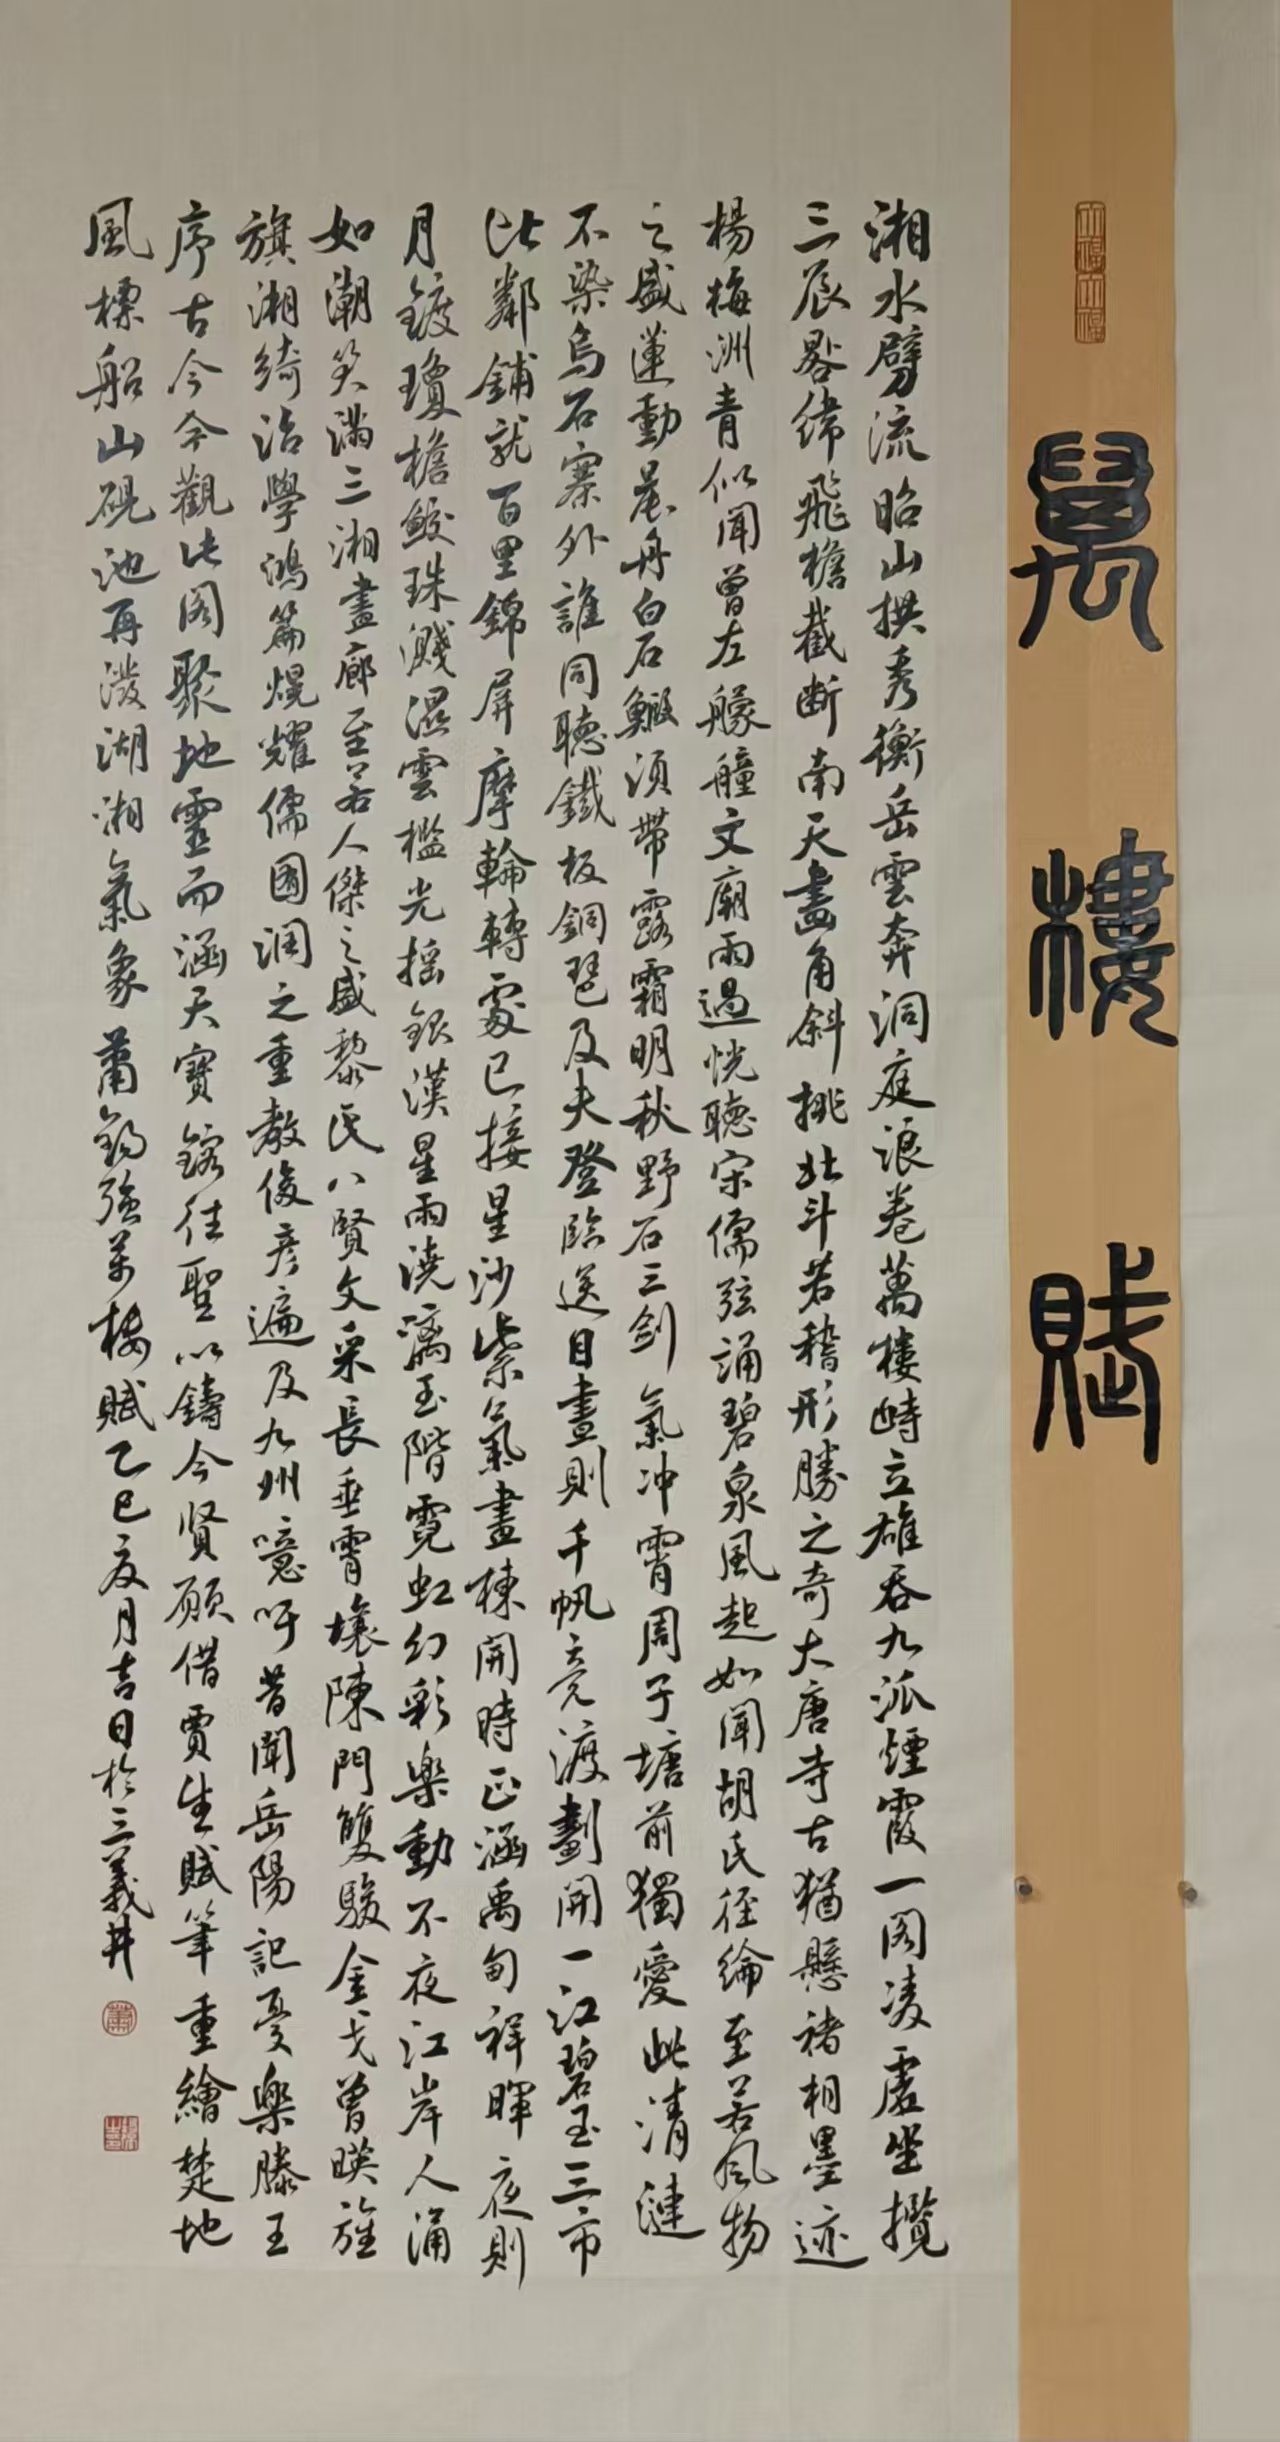 萬樓賦
湘水劈流昭山拱秀衡岳雲奔洞庭浪卷萬樓峙立雄吞九派煙霞一閣凌虛坐攬
三辰晷緯飛檐截斷南天畫角斜挑北斗若稽形勝之奇大唐寺古猶懸褚相墨迹
楊梅洲青似聞曾左艨艟文廟雨過恍聽宋儒弦誦碧泉風起如聞胡氏徑綸至若風物
之盛蓮動花舟白石鰕須帶露霜明秋野石三劍氣冲霄周子塘前獨愛此清漣
不染烏石寨外誰同聽鐵板銅琶及夫登臨送目晝則千帆竞渡劃開一江碧玉三市
比鄰鋪就百里錦屏摩輪轉處已接星沙紫氣畫棟開時正涵禹甸祥暉夜則
月鍍瓊檐鮫珠濺濕雲檻光搖銀漢星雨澆漓玉階霓虹幻彩樂動不夜江岸人涌
如潮笑滿三湘畫廊至若人傑之盛黎氏八賢文采長垂霄壤陳門雙駿金戈曾暎旌
旗湘綺治學鴻篇熀耀儒圃润之重教俊彦遍及九州噫吁昔聞岳陽記憂樂滕王
序古今今觀此閣聚地靈而涵天寶鎔往聖以鑄今贤願借賈生賦筆重繪楚地
風標船山硯池再潑湖湘氣象蕭錫強萬樓賦乙巳夏月吉日於三義井